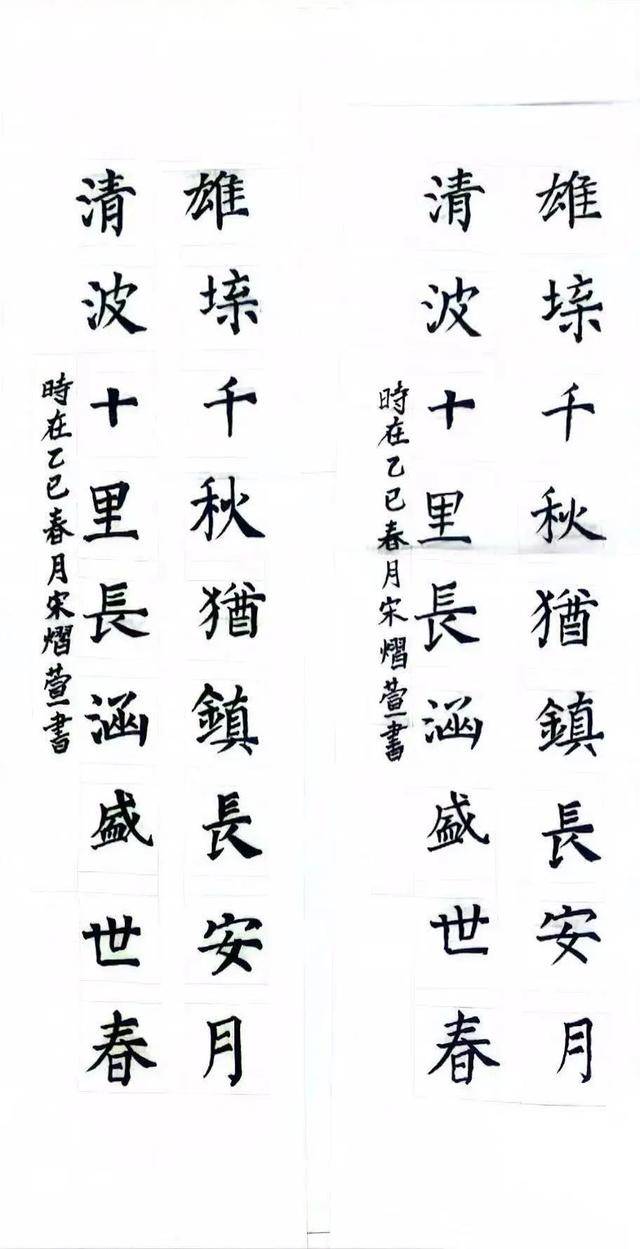 雄垛千秋猶鎮長安月
清波十里長涵盛世春
時在乙巳春月宋熠萱書
雄垛千秋猶鎮長安月
清波十里長涵盛世春
時在乙巳春月宋熠萱書